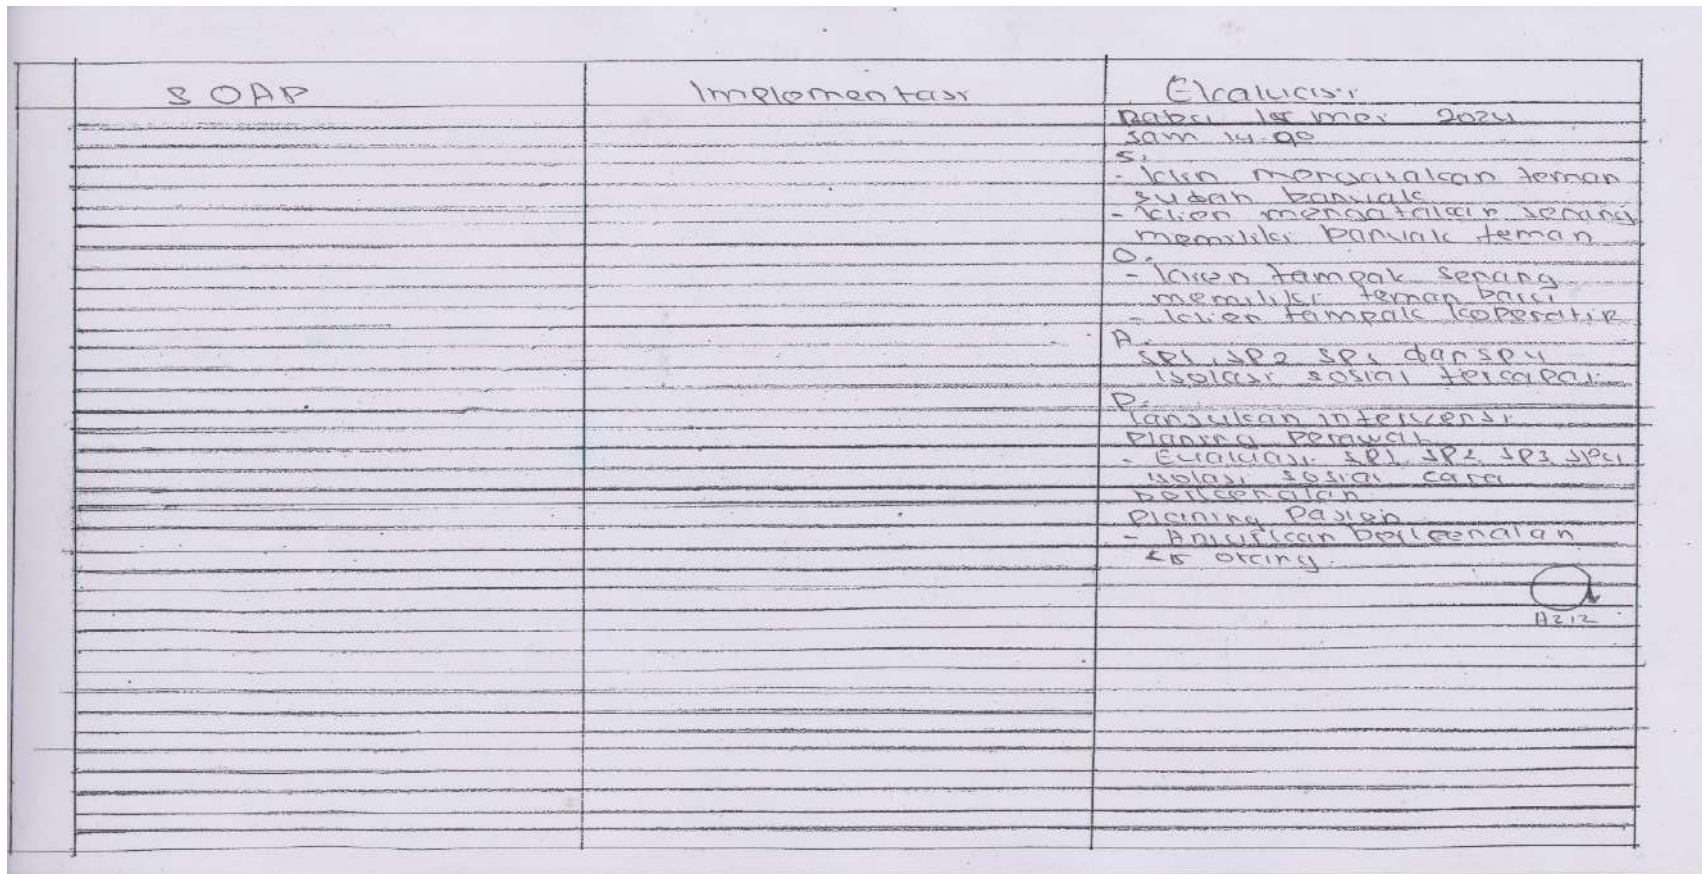 SOAP
Implementasi
Evaluasi
Rabu 15 mei 2024
Jam 14.00
S.
- klien mengatakan teman
sudah banyak
- klien mengatakan senang
memiliki banyak teman
O.
- klien tampak senang
memiliki teman baru
- klien tampak koperatif
A.
SP1, SP2 SP3 dan SP4
isolasi sosial tercapai
P.
lanjutkan intervensi
Planing Perawat
- Evaluasi SP1 SP2 SP3 SP4
isolasi sosial cara
berkenalan
Planing Pasien
- Anjurkan berkenalan
orang